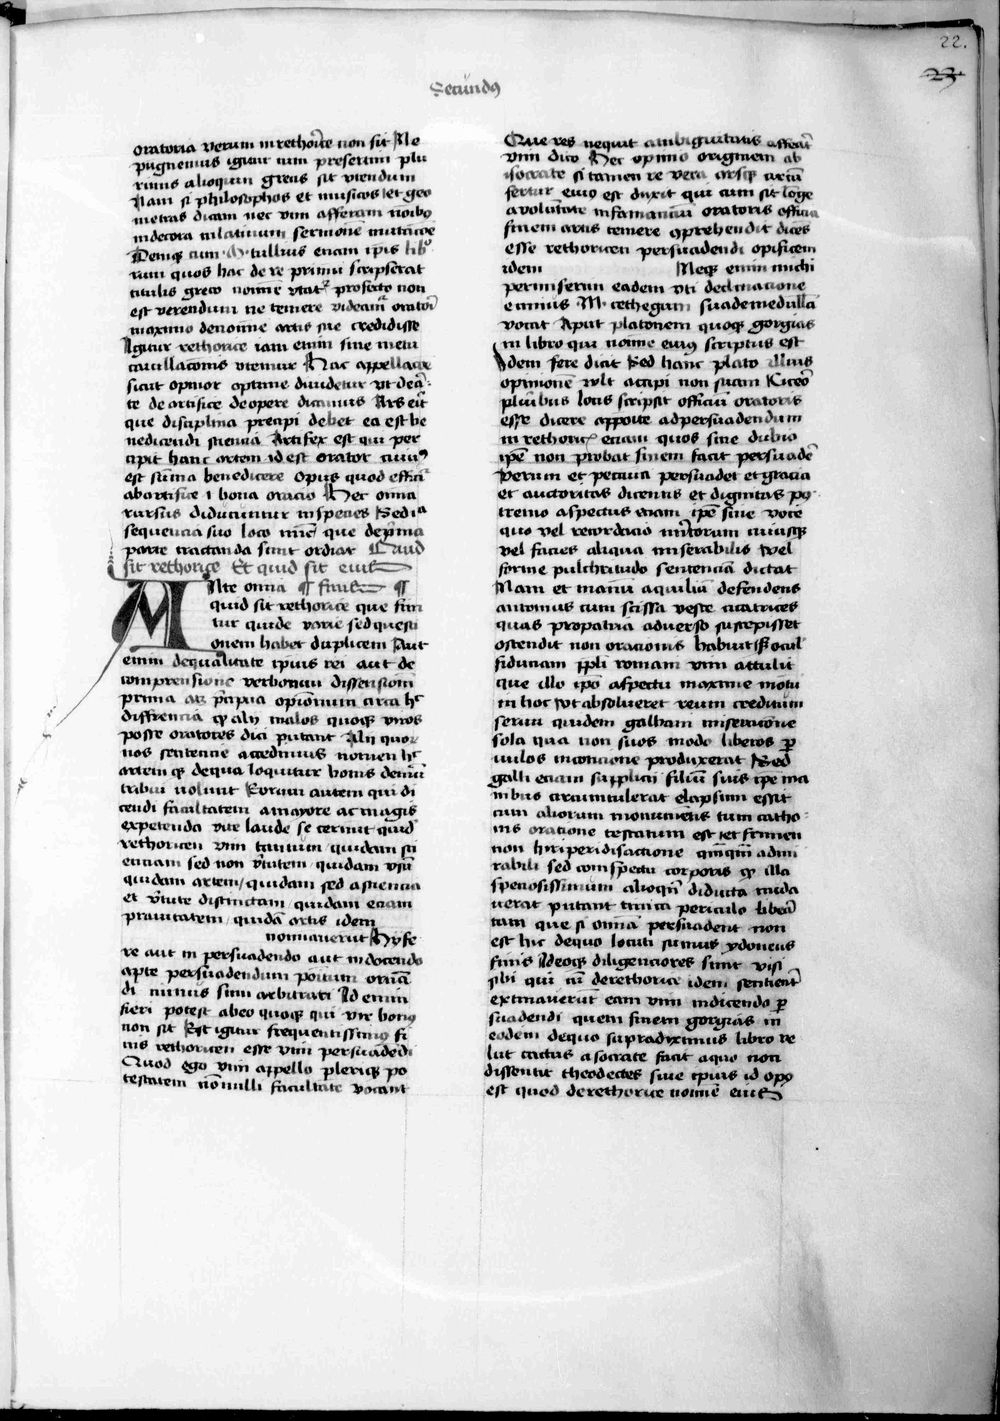 22.
23
Secundus
oratoria verum in rethorice non sit Ne
pugnemus igitur cum presertim plu
rimis alioquin grecis sit vtendum
Nam si philosophos et musicos et geo
metras dicam nec vim afferam noibus
indecora in latinum sermone mutacione
Deniqz cum M tullius etiam ipis lib
rum quos hac de re primu scripserat
titulis greco nomine vtatr profecto non
est verendum ne temere videamr oratori
maximo de nomine artis sue credidisse
Igitur rethorice iam enim sine metu
cauillacionis vtemur Hac appellacione
sicut opinor optime diuidetur vt de ar
te de artifice de opere dicamus Ars erit
que disciplina precipi debet ea est be
ne dicendi sciencia Artifex est qui per
cipit hanc artem id est orator cuius
est suma bene dicere Opus quod effici
ab artifice i bona oracio Hec omia
rursus diducuntur in species Sed ia
sequencia suo loco nuc que de prima
parte tractanda sunt ordiar Quid
sit rethorice Et quid sit eius
Nte omia ¶ finis ¶
quid sit rethorice que fin
tur quide varie sed questi
onem habet duplicem Aut
enim de qualitate ipius rei aut de
comprensione verborum dissensiom
prima atqz pcipua opionum circa hc
differencia qz alij malos quoqz viros
posse oratores dici putant Alij quor
nos sentencie accedimus nomen hc
artem qz de qua loquitur bonis demu
tribui volunt Eorum autem qui di
cendi facultatem a mayore ac magis
expetenda vite laude se cernit quid
rethoricen vim tantum quidam sci
enciam sed non vtutem quidam vsu
quidam artem quidam sed a sciencia
et vtute distinctam quidam eciam
prauitatem quida artis idem
nominauerut Hij fe
re aut in persuadendo aut in docendo
apte persuadendum positum oracio
di minus sunt arbitrati Id enim
fieri potest ab eo quoqz qui vir bonus
non sit Est igitur frequentissimo fi
nis rethoricen esse vim persuadedi
Quod ego vim appello pleriqz po
testatem nonulli facultate vocant
Que res nequit ambiguitatis afferat
vim dico Hec opinio originem ab
isocrate si tamen re vera
fertur eius est duxit qui cum sit longe
a voluntate infamancium oratoris officia
finem artis temere comprehendit dices
esse rethoricen persuadendi opificem
idem Neqz enim michi
permiserim eadem vti declinacione
ennius M cethegum suade medulla
vocat Aput platonem quoqz gorgias
in libro qui noine eius scriptus est
Idem fere dicit Sed hanc plato illius
opinione vlt accipi non suam Cicero
pluribus locis scripsit officiu oratoris
esse dicere apposite ad persuadendum
in rethoricis eciam quos sine dubio
ipe non probat finem facit persuade
Verum et pecuia persuadet et gracia
et auctoritas dicentis et dignitas pos
tremo aspectus eciam ipe sine voce
quo vel recordacio meritorum cuiusqz
vel facies aliqua miserabilis vel
forme pulchritudo sentencia dictat
Nam et maniu aquiliu defendens
antonius cum scissa veste cicatrices
quas pro patria aduerso suscepisset
ostendit non oracionis habuit
fiduciam ppli romani vim attulit
que illo ipo aspectu maxime motu
in hoc vt absolueret reum creditum
seruiu quidem galbam miseracione
sola qua non suos modo liberos p
uulos in concione produxerat Sed
galli eciam sulpicii filiu suis ipe ma
nibus circumtulerat elapsum essit
cum aliorum monumentis tum catho
nis oracione testatum est et frinen
non hiriperidis accione admi
rabili sed conspectu corporis qz illa
speciosissimum alioqn diducta nuda
uerat putant tunica periculo liberat
tam que si omnia persuadent non
est hic de quo locuti sumus ydoneus
finis Ideoqz diligenciores sunt visi
sibi qui cu de rethorice idem sentient
extimauerut eam vim in dicendo p
suadendi quem finem gorgias in
eodem de quo supra diximus libro ve
lut coactus a socrate facit a quo non
dissentit theodectes siue ipius id opus
est quod de rethorice nomine eius